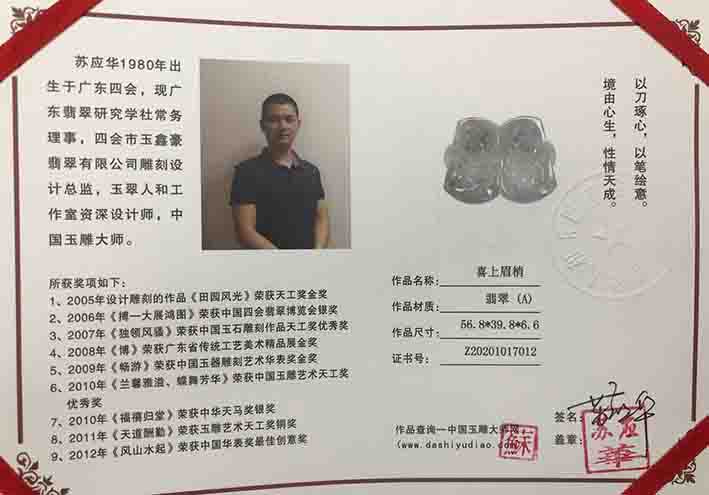 苏应华1980年出
生于广东四会，现广
东翡翠研究学社常务
理事，四会市玉鑫豪
翡翠有限公司雕刻设
计总监，玉翠人和工
作室资深设计师，中
国玉雕大师。
以刀琢心，以笔绘意。
境由心生，性情天成。
所获奖项如下：
1、2005年设计雕刻的作品《田园风光》荣获天工奖金奖
2、2006年《搏一大展鸿图》荣获中国四会翡翠博览会银奖
3、2007年《独领风骚》荣获中国玉石雕刻作品天工奖优秀奖
4、2008年《博》荣获广东省传统工艺美术精品展金奖
5、2009年《畅游》荣获中国玉器雕刻艺术华表奖金奖
6、2010年《兰馨雅溢、蝶舞芳华》荣获中国玉雕艺术天工奖
优秀奖
7、2010年《福禧归堂》荣获中华天马奖银奖
8、2011年《天道酬勤》荣获玉雕艺术天工奖铜奖
9、2012年《风山水起》荣获中国华表奖最佳创意奖
作品名称：喜上眉梢
作品材质：翡翠 (A)
作品尺寸：56.8*39.8*6.6
证书号：Z20201017012
作品查询一中国玉雕大师网
(www.dashiyudiao.com)
蘇
签名：苏应华
盖章：苏应華